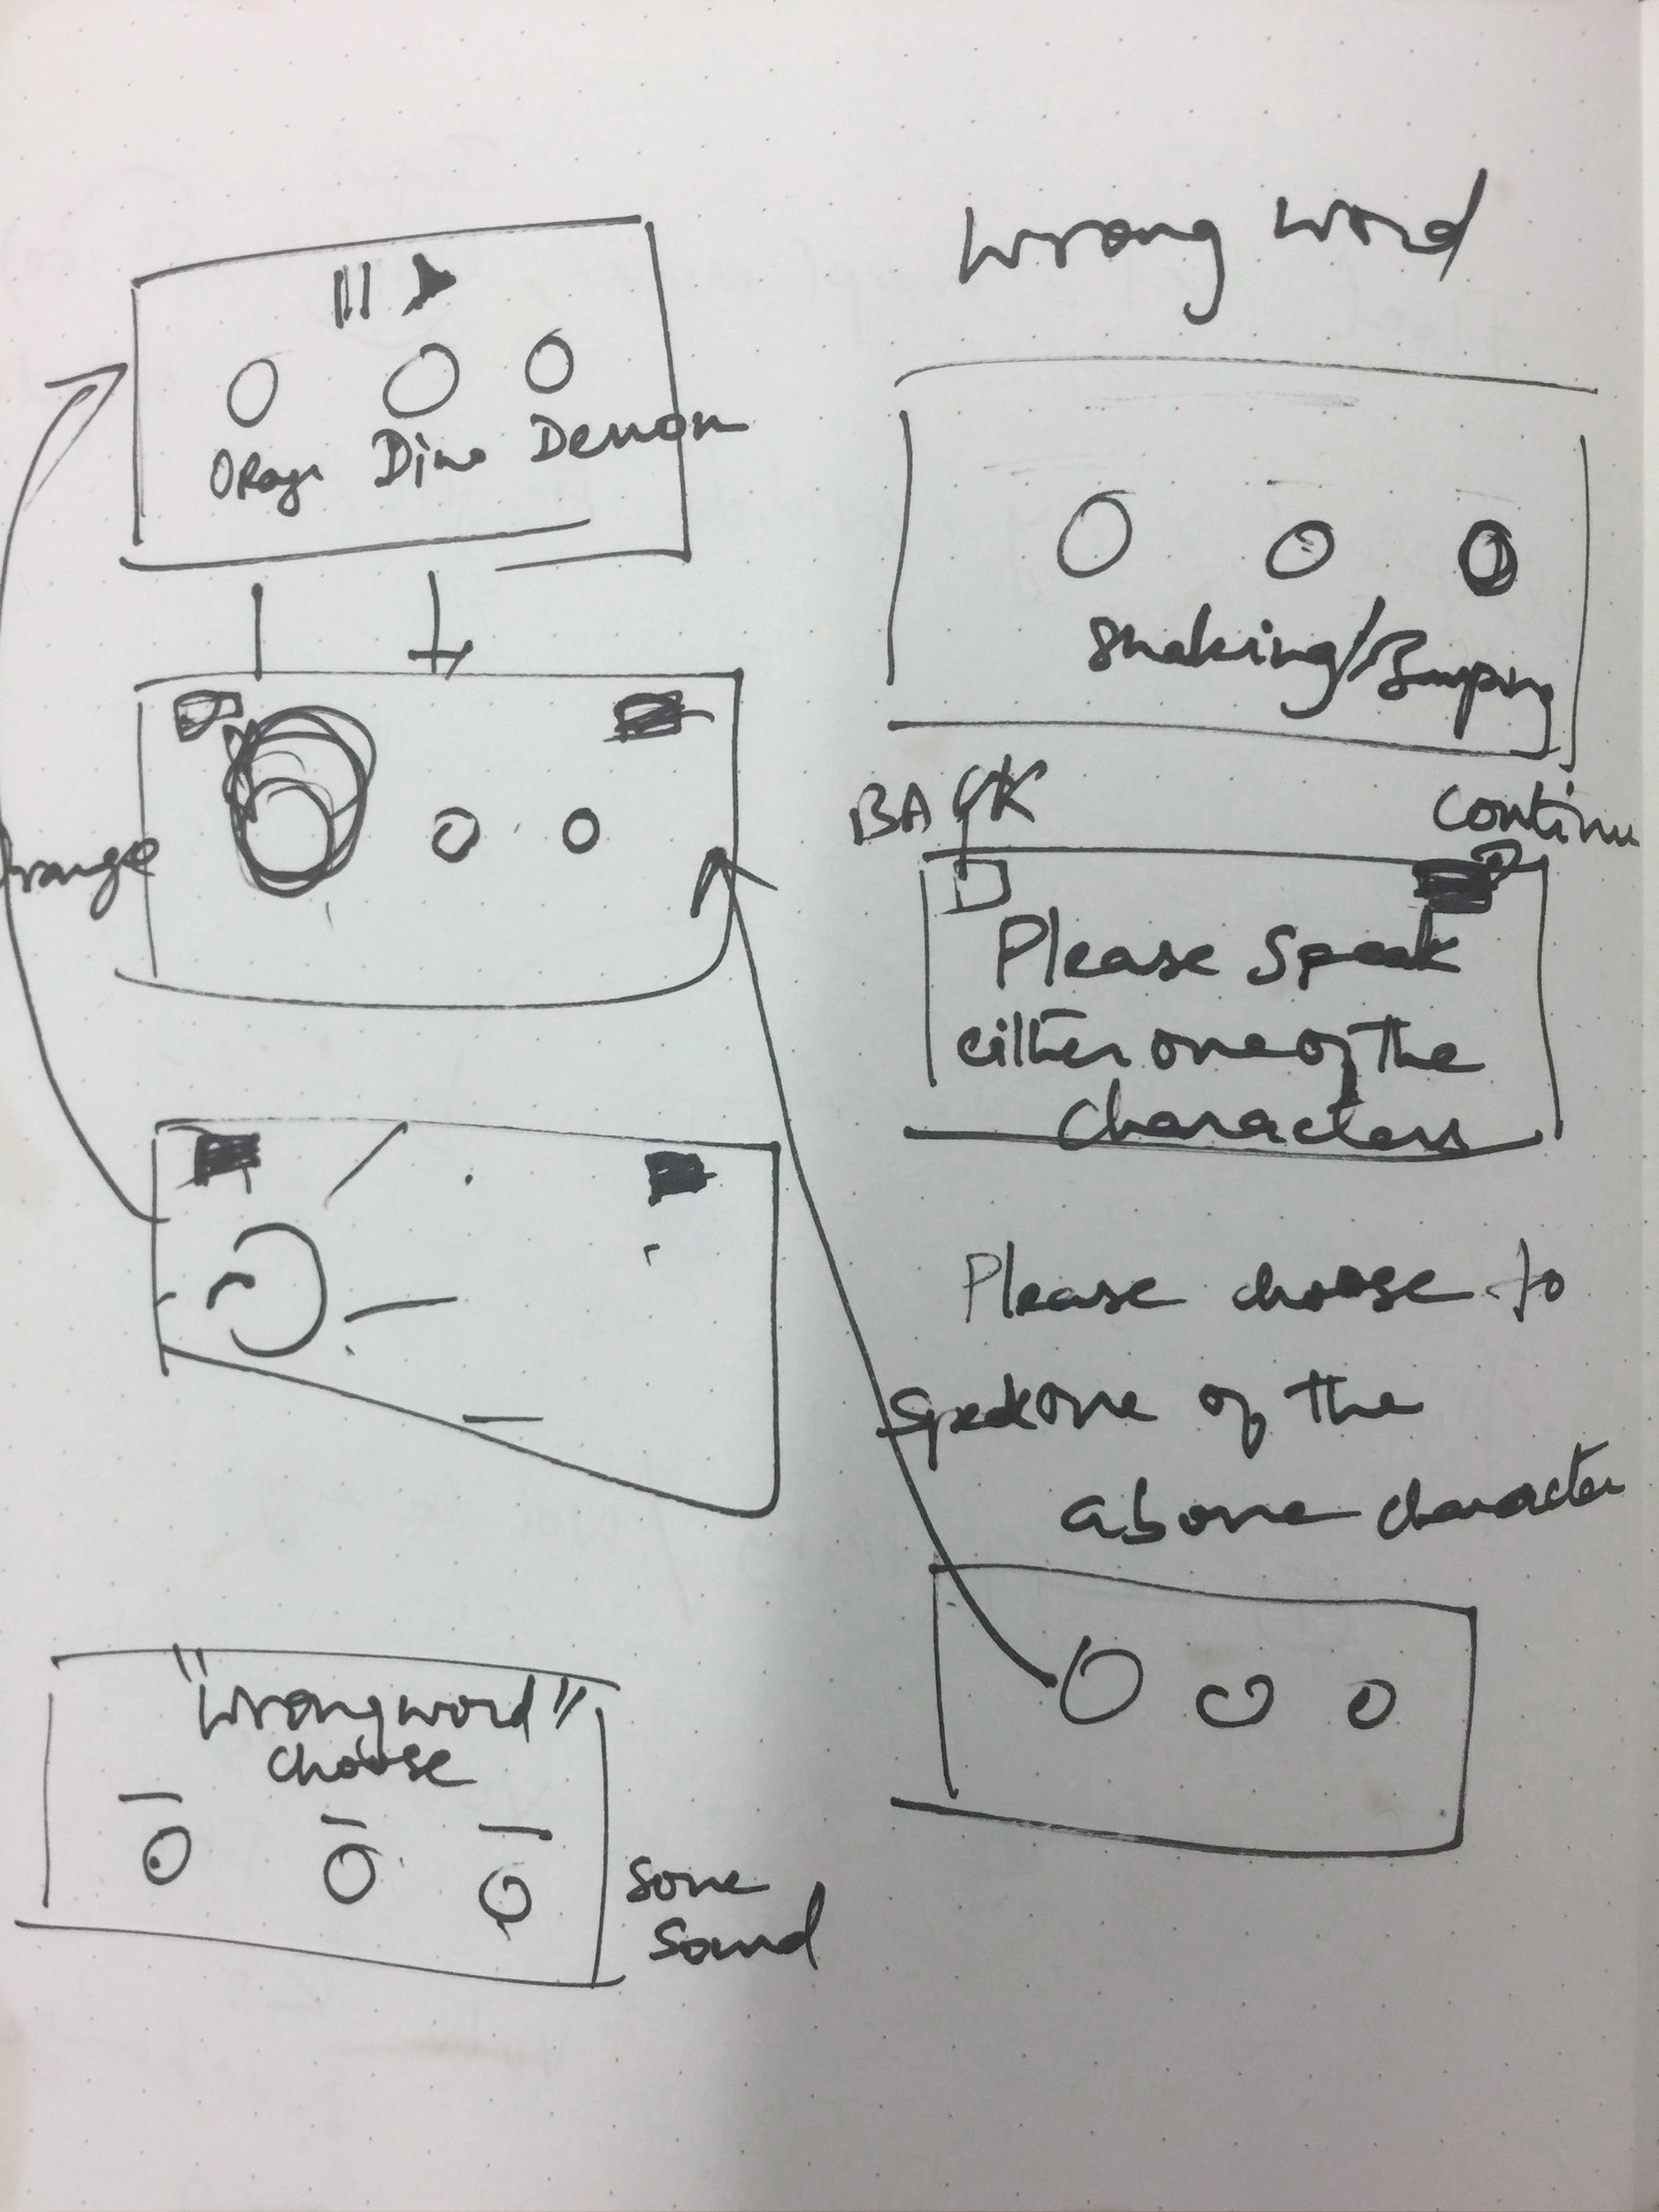 Dino Demon
orange
"Wrong word"
choose
some
sound
Wrong word
Shaking/Bumping
BACK
Continu
Please Speak
either one of the
characters
Please choose to
Speak one of the
above character